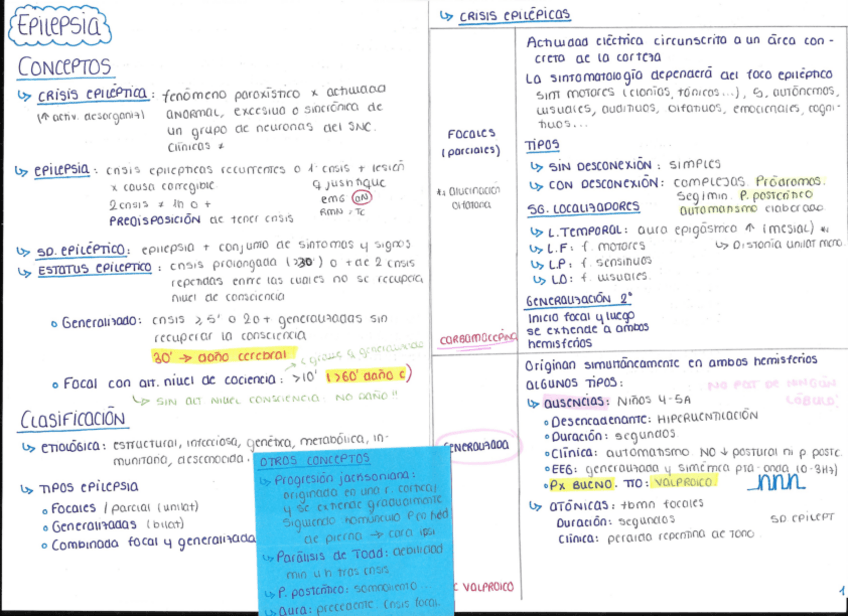 Epilepsia
CONCEPTOS
↳ CRISIS EPILÉPTICA: fenómeno paroxístico x actividad
(↑ activ. desorganiz) ANORMAL, excesiva o sincrónica de
un grupo de neuronas del SNC.
Clínicas ≠
↳ EPILEPSIA: crisis epilépticas recurrentes o 1ª crisis + lesión
x causa corregible. q justifique
2 crisis ≠ 1h o + EMG ON
PREDISPOSICIÓN de tener crisis RMN, TC
↳ SD. EPILÉPTICO: epilepsia + conjunto de síntomas y signos
↳ ESTATUS EPILEPTICO: crisis prolongada (>30') o + de 2 crisis
repetidas entre las cuales no se recupera
nivel de consciencia
Generalizado: crisis ≥ 5' o 2 o + generalizadas sin
recuperar la consciencia
30' → daño cerebral
Focal con alt. nivel de cociencia: >10' (>60' daño c)
↳ SIN ALT NIVEL CONSCIENCIA: NO DAÑO!!
CLASIFICACIÓN
↳ ETIOLÓGICA: estructural, infecciosa, genética, metabólica, in-
munitaria, desconocida.
↳ TIPOS EPILEPSIA
Focales / parcial (unilat)
Generalizadas (bilat)
Combinada focal y generalizada
OTROS CONCEPTOS
↳ Progresión jacksoniana:
originada en una r. cortical
y se extiende gradualmente
siguiendo homúnculo Penfield
de pierna → cara ipsi
↳ Parálisis de Toad: debilidad
min u h tras crisis
↳ P. postcrítico: somnoliento...
↳ Aura: precedente. Crisis focal.
↳ CRISIS EPILÉPICAS
FOCALES
(parciales)
*: Alucinación
olfatoria
CARBAMACEPINA
Actividad eléctrica circunscrita a un área con-
creta de la corteza
La sintomatología dependerá del foco epiléptico
sim motores (clonías, tónicos...), S. autónomos,
visuales, auditivos, olfativos, emocionales, cogni-
tivos...
TIPOS
↳ SIN DESCONEXIÓN: simples
↳ CON DESCONEXIÓN: complejas. Pródromos.
seg/min. P. postcrítico
automatismo elaborado
SG. LOCALIZADORES
↳ L. TEMPORAL: aura epigástrica ↑ (mesial) *
↳ L.F: f. motores ↳ Distonía unilat mano
↳ L.P: f. sensitivos
↳ L.O: f. visuales.
GENERALIZACIÓN 2ª
Inicio focal y luego
se extiende a ambos
hemisferios
GENERALIZADA
VALPROICO
Originan simultáneamente en ambos hemisferios
ALGUNOS TIPOS: NO PAT DE NINGÚN
LÓBULO!
↳ AUSENCIAS: Niños 4-5A
Desencadenante: HIPERVENTILACIÓN
Duración: segundos
Clínica: automatismo. NO ↓ postural ni p postc.
EEG: generalizada y simétrica pta-onda (0-3HZ)
PX BUENO. TTO: VALPROICO
↳ ATÓNICAS: tbmn focales
Duración: segundos SD EPILEPT
Clínica: perdida repentina de tono
1